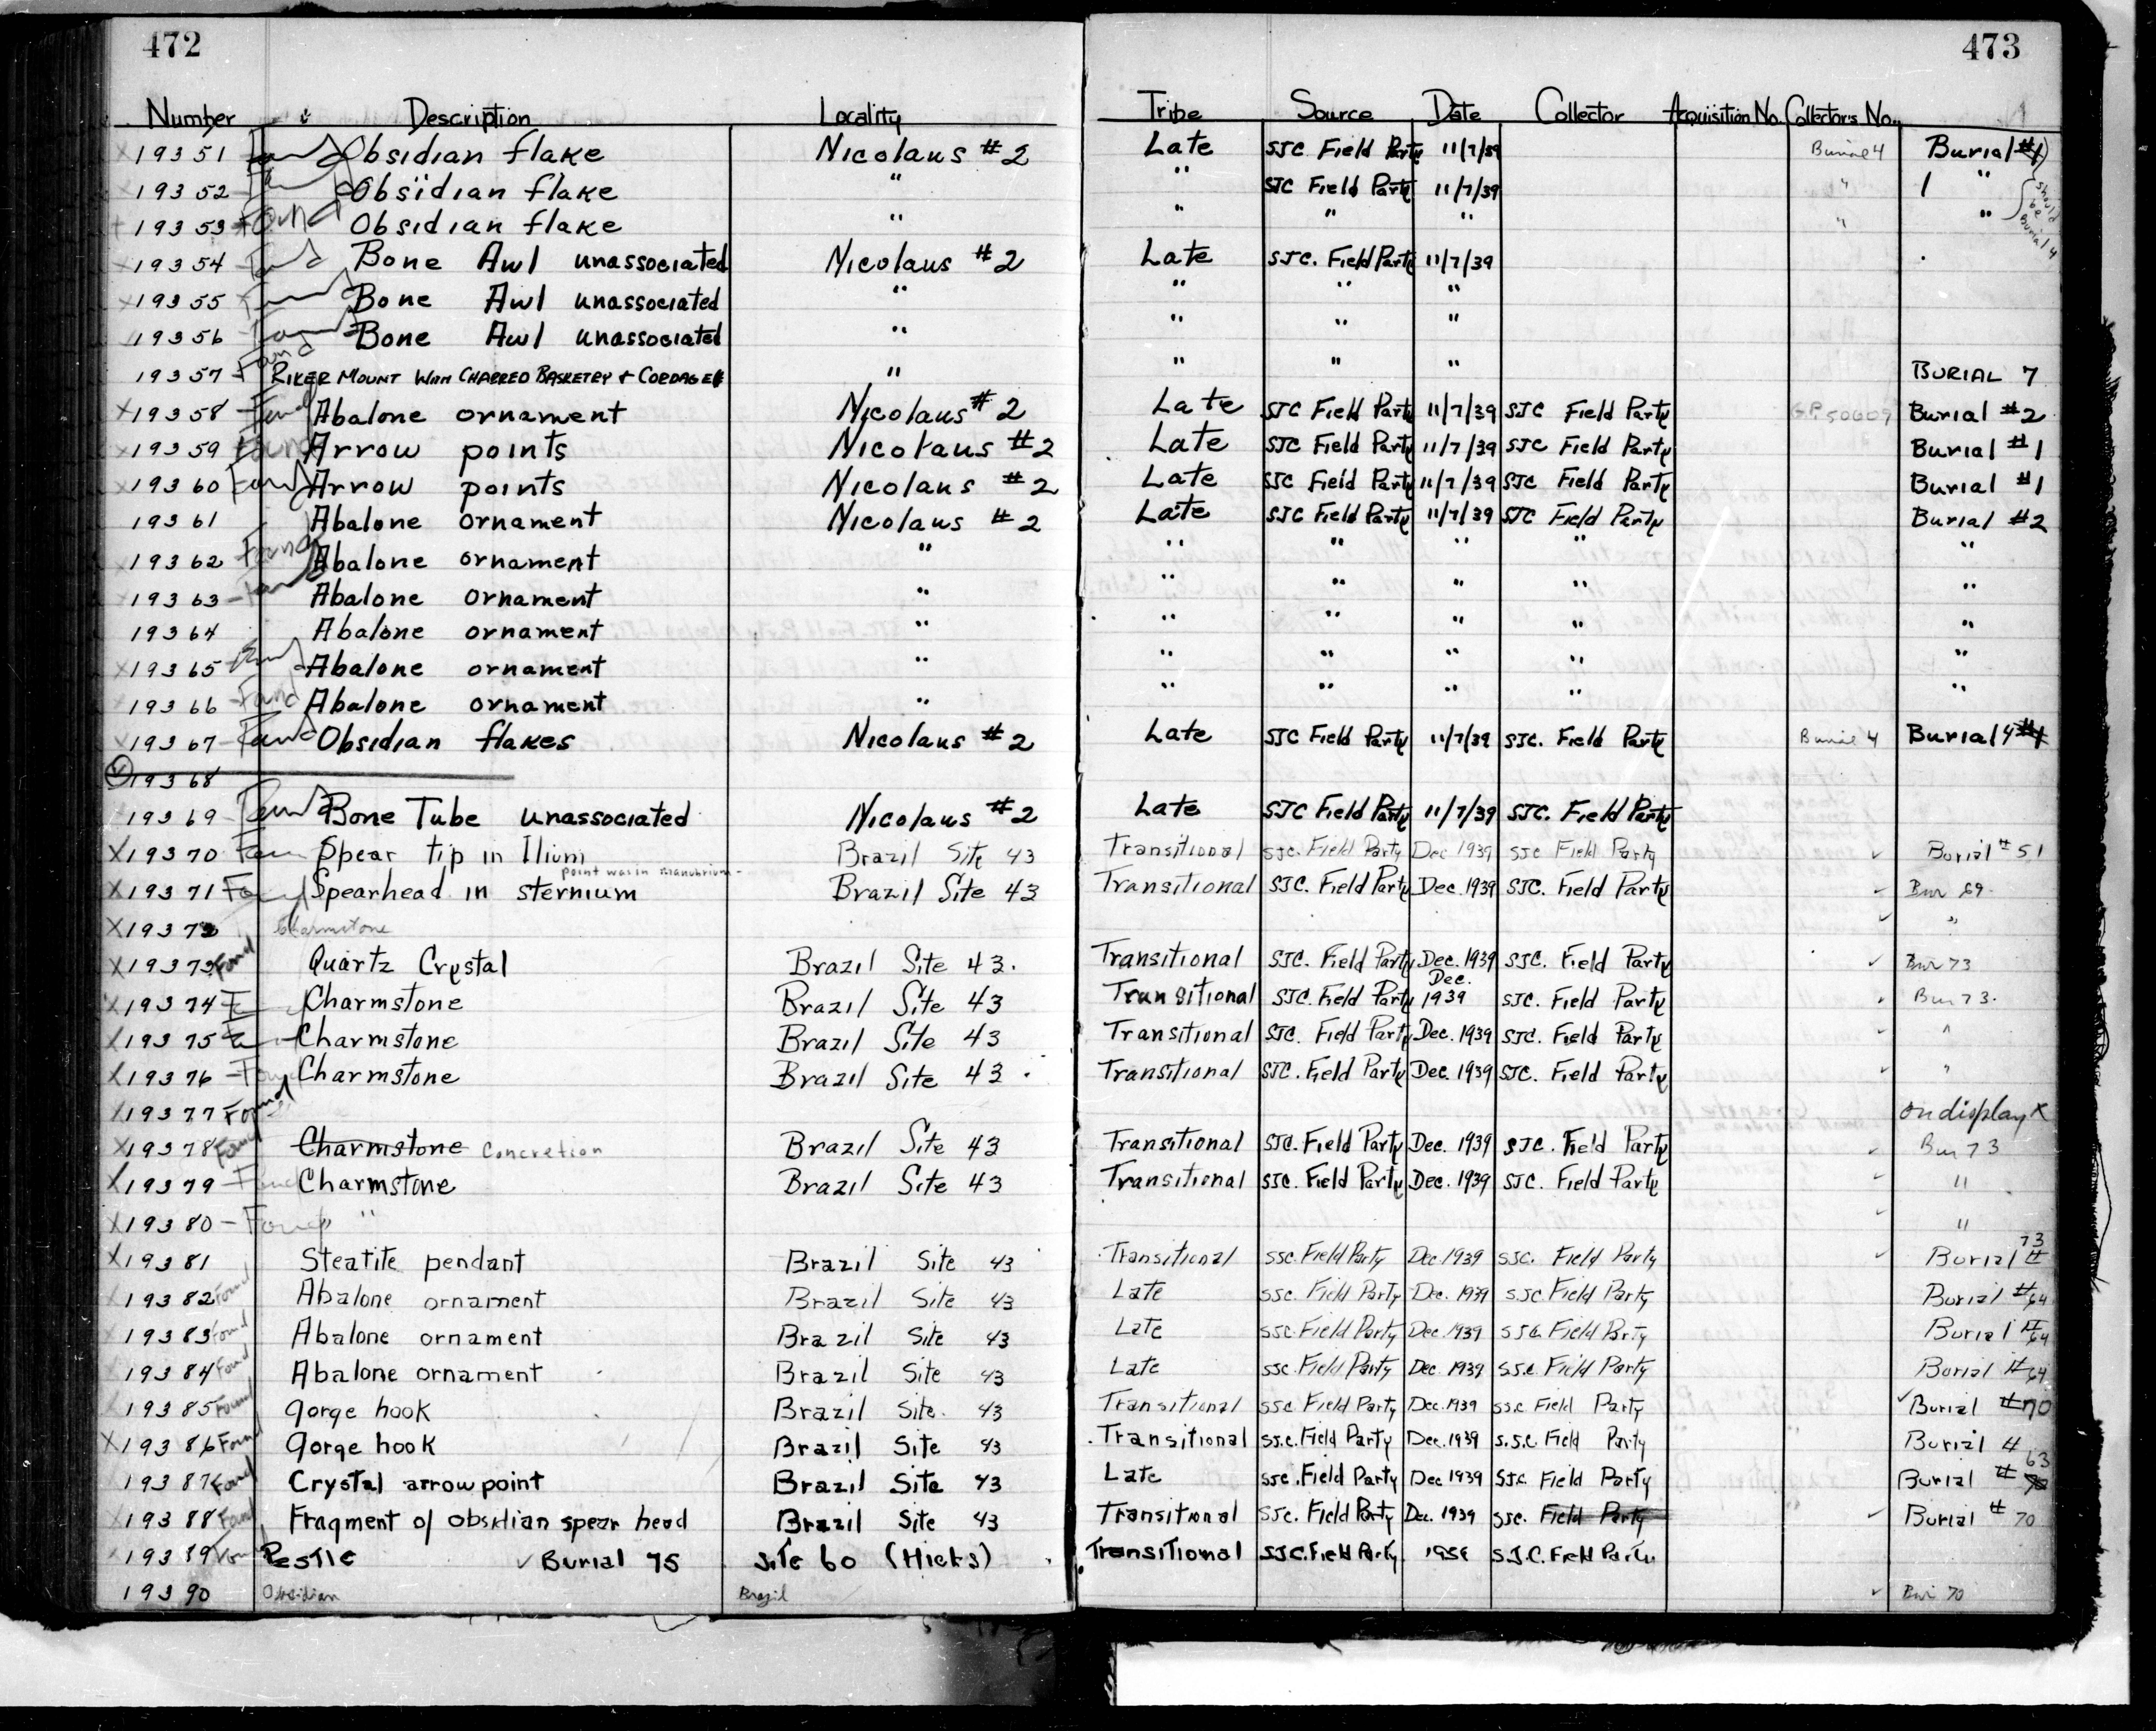 472
473
Number Description Locality Tribe Source Date Collector Acquisition No. Collector's No.
19351 Found Obsidian flake Nicolaus #2 Late SJC Field Party 11/7/39 Burial 4 Burial #1
19352 Obsidian flake " " SJC Field Party 11/7/39 " 1 "
should be Burial 4
19353 Found Obsidian flake " " " " " "
19354 Found Bone Awl unassociated Nicolaus #2 Late SJC. Field Party 11/7/39
19355 Found Bone Awl unassociated " " " "
19356 Found Bone Awl unassociated " " " "
19357 Found RIKER MOUNT WITH CHARRED BASKETRY & CORDAGE " " " " BURIAL 7
X19358 Found Abalone ornament Nicolaus #2 Late SJC Field Party 11/7/39 SJC Field Party Burial #2
X19359 Found Arrow points Nicolaus #2 Late SJC Field Party 11/7/39 SJC Field Party Burial #1
X19360 Found Arrow points Nicolaus #2 Late SJC Field Party 11/7/39 SJC Field Party Burial #1
19361 Abalone ornament Nicolaus #2 Late SJC Field Party 11/7/39 SJC Field Party Burial #2
19362 Found Abalone ornament " " " " " "
19363 Found Abalone ornament " " " " " "
19364 Abalone ornament " " " " " "
X19365 Found Abalone ornament " " " " " "
X19366 Found Abalone ornament " " " " " "
19367 Found Obsidian flakes Nicolaus #2 Late SJC Field Party 11/7/39 SJC. Field Party Burial 4 Burial 4 #1
19368
19369 Found Bone Tube unassociated Nicolaus #2 Late SJC Field Party 11/7/39 SJC. Field Party
X19370 Found Spear tip in Ilium Brazil Site 43 Transitional SJC. Field Party Dec 1939 SJC Field Party ✓ Burial #51
point was in manubrium -
X19371 Found Spearhead in sternium Brazil Site 43 Transitional SJC. Field Party Dec. 1939 SJC. Field Party ✓ Bur 69.
X19372 Charmstone ✓ "
X19373 Found Quartz Crystal Brazil Site 43. Transitional SJC. Field Party Dec. 1939 SJC. Field Party ✓ Bur 73
X19374 Charmstone Brazil Site 43 Transitional SJC. Field Party Dec. 1939 SJC. Field Party ✓ Bur 73.
X19375 Charmstone Brazil Site 43 Transitional SJC. Field Party Dec. 1939 SJC. Field Party ✓ "
X19376 Found Charmstone Brazil Site 43 Transitional SJC. Field Party Dec. 1939 SJC. Field Party ✓ "
X19377 Found on display X
X19378 Found Charmstone Concretion Brazil Site 43 Transitional SJC. Field Party Dec. 1939 SJC. Field Party ✓ Bur 73
X19379 Found Charmstone Brazil Site 43 Transitional SJC. Field Party Dec. 1939 SJC. Field Party ✓ "
X19380 - Found " ✓ "
X19381 Steatite pendant Brazil Site 43 Transitional SJC. Field Party Dec 1939 SJC. Field Party ✓ Burial # 73
19382 Found Abalone ornament Brazil Site 43 Late SJC. Field Party Dec. 1939 SJC Field Party Burial #64
19383 Found Abalone ornament Brazil Site 43 Late SJC Field Party Dec. 1939 SJC Field Party Burial #64
19384 Found Abalone ornament Brazil Site 43 Late SJC. Field Party Dec. 1939 SJC Field Party Burial #64
19385 Found gorge hook Brazil Site. 43 Transitional SJC. Field Party Dec. 1939 SJC Field Party ✓ Burial #70
X19386 Found gorge hook Brazil Site 43 Transitional SJ.C. Field Party Dec. 1939 S.J.C. Field Party Burial 4
X19387 Found Crystal arrow point Brazil Site 43 Late SJC. Field Party Dec 1939 SJC Field Party Burial # 63
19388 Found Fragment of obsidian spear head Brazil Site 43 Transitional SJC. Field Party Dec. 1939 SJC. Field Party ✓ Burial # 70
19389 Found Pestle ✓ Burial 75 Site 60 (Hicks) Transitional S.J.C. Field Party S.J.C. Field Party
19390 Obsidian Brazil ✓ Bur 70